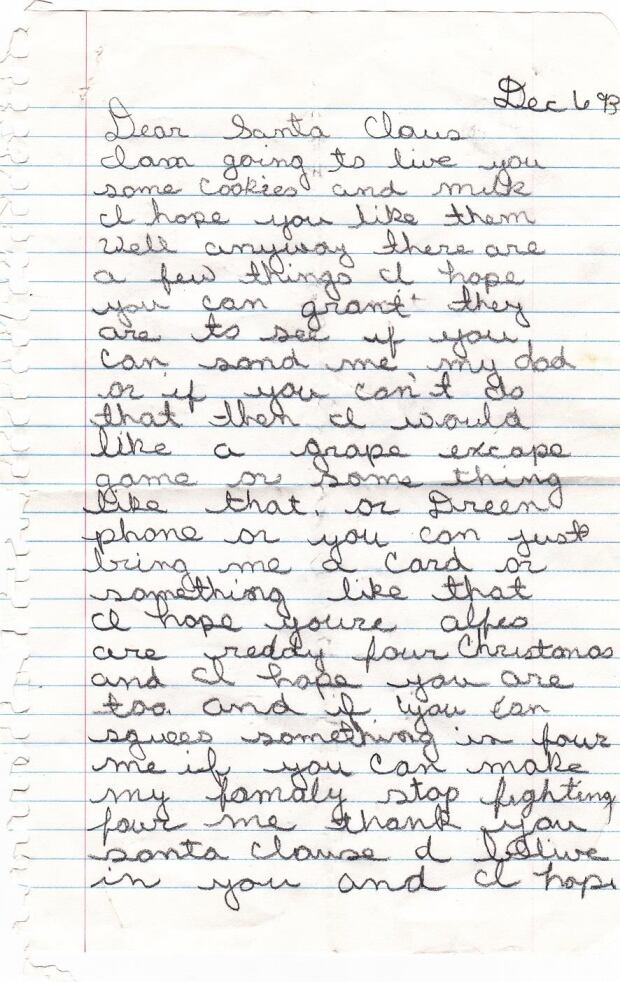 Dec 6 93
Dear Santa Claus
I am going to live you
some cookies and milk
I hope you like them
Well anyway there are
a few things I hope
you can grant they
are to see if you
can sand me my dad
or if you can't do
that then I would
like a grape excape
game or some thing
like that. or Dreen
phone or you can just
bring me a card or
something like that
I hope youre alfes
are reddy four Christmas
and I hope you are
too and if you can
squees something in four
me if you can make
my famaly stop fighting
four me thank you
santa clause I belive
in you and I hope